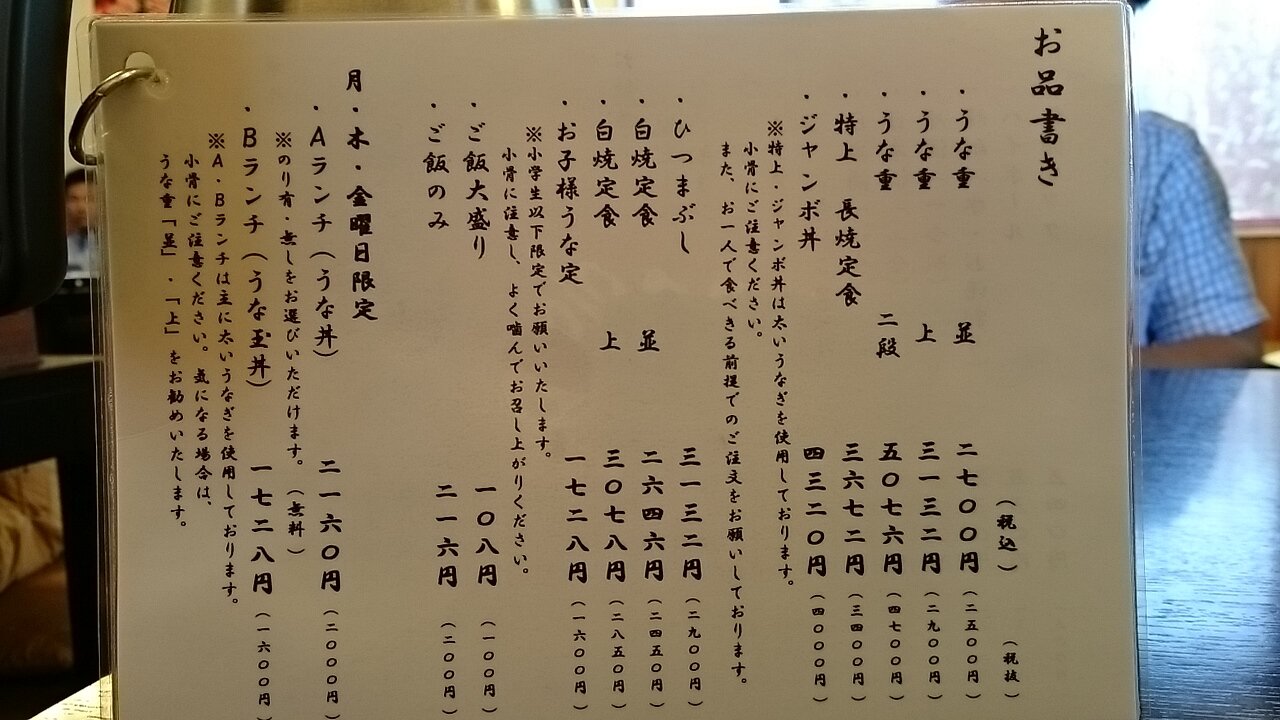 お品書き
（税込）　（税抜）
・うな重　並　二七〇〇円（二五〇〇円）
・うな重　上　三一三二円（二九〇〇円）
・うな重　二段　五〇七六円（四七〇〇円）
・特上　長焼定食　三六七二円（三四〇〇円）
・ジャンボ丼　四三二〇円（四〇〇〇円）
※特上・ジャンボ丼は太いうなぎを使用しております。
小骨にご注意ください。
また、お一人で食べきる前提でのご注文をお願いしております。
・ひつまぶし　三一三二円（二九〇〇円）
・白焼定食　並　二六四六円（二四五〇円）
・白焼定食　上　三〇七八円（二八五〇円）
・お子様うな定　一七二八円（一六〇〇円）
※小学生以下限定でお願いいたします。
小骨に注意し、よく噛んでお召し上がりください。
・ご飯大盛り　一〇八円（一〇〇円）
・ご飯のみ　二一六円（二〇〇円）
月・木・金曜日限定
・Aランチ（うな丼）　二一六〇円（二〇〇〇円）
※のり有・無しをお選びいただけます。（無料）
・Bランチ（うな玉丼）　一七二八円（一六〇〇円）
※A・Bランチは主に太いうなぎを使用しております。
小骨にご注意ください。気になる場合は、
うな重「並」・「上」をお勧めいたします。